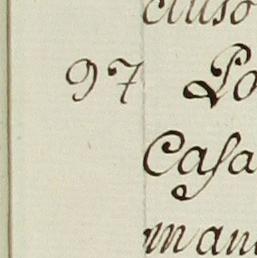 cluso
97 Po
Casa
man